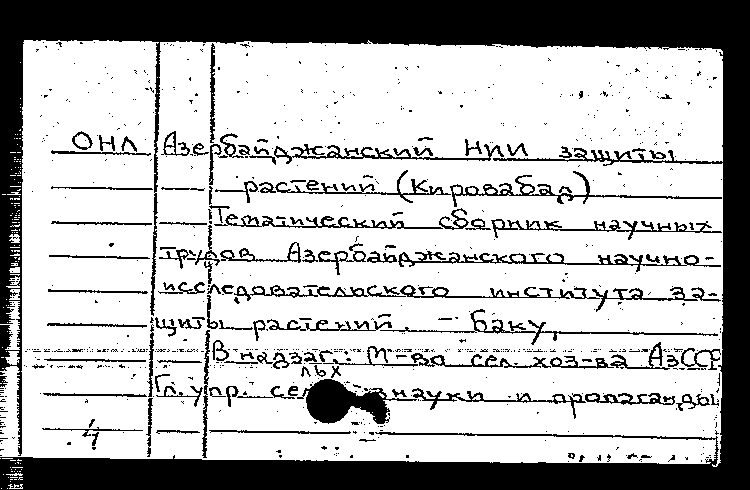 ОНЛ Азербайджанский НИИ защиты
растений (Кировабад)
Тематический сборник научных
трудов Азербайджанского научно-
исследовательского института за-
щиты растений. - Баку,
В надзаг.: М-во сел. хоз-ва АзССР,
льх
Гл. упр. се науки и пропаганды
4